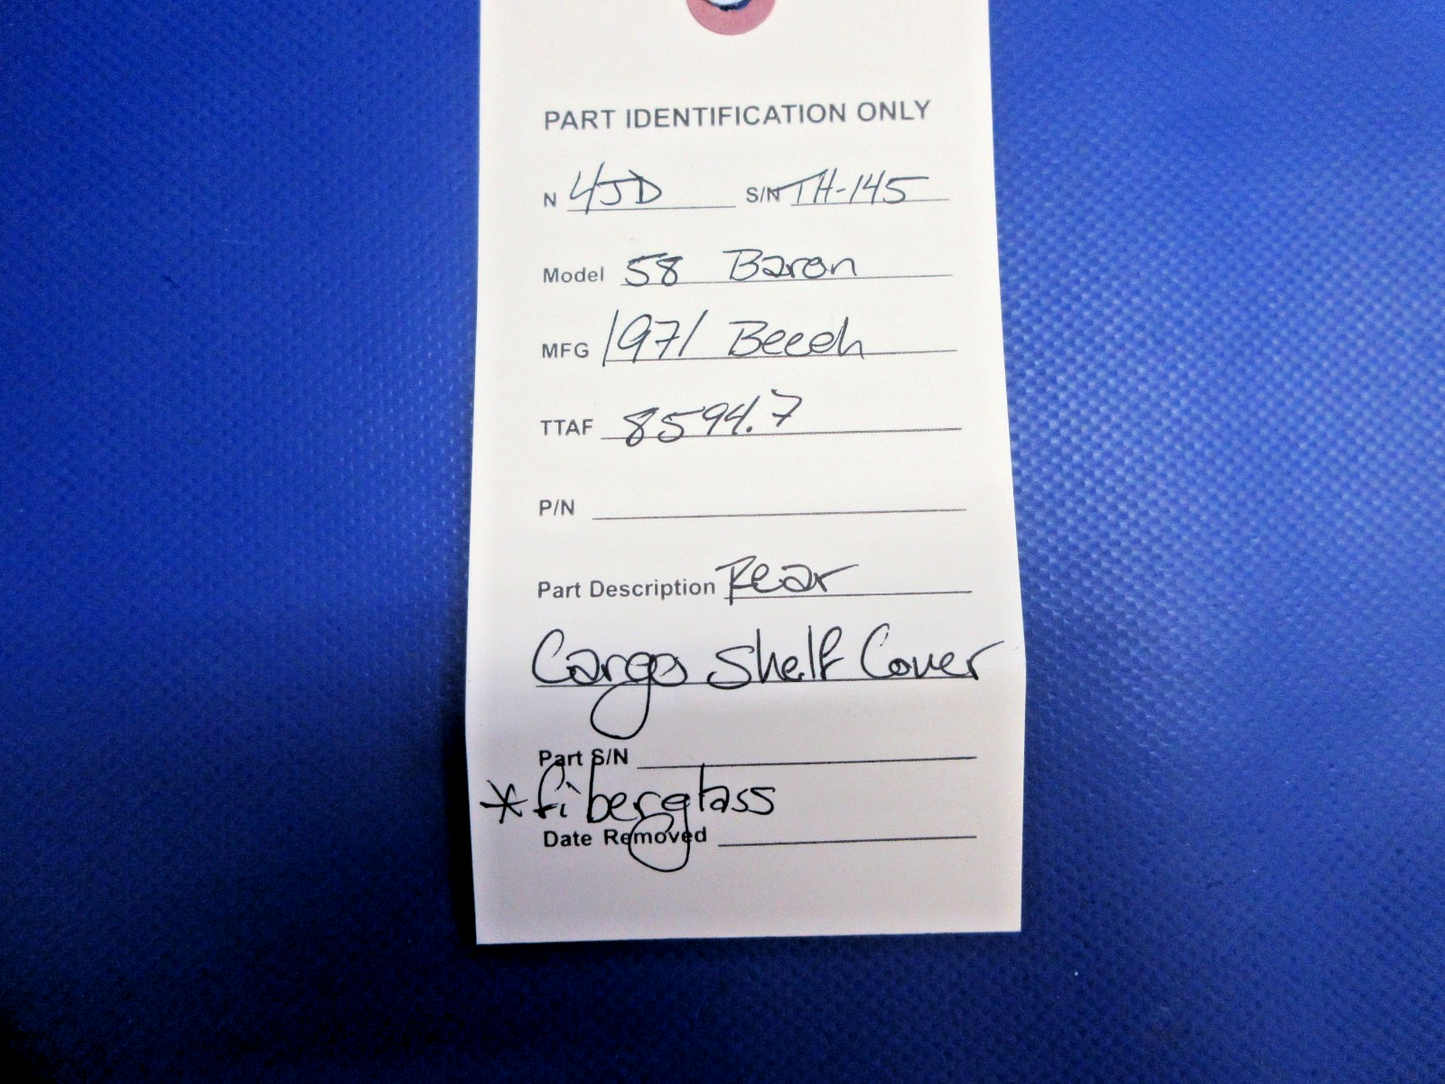 PART IDENTIFICATION ONLY
N 4JD S/N TH-145
Model 58 Baron
MFG 1971 Beech
TTAF 8594.7
P/N
Part Description Rear
Cargo Shelf Cover
Part S/N
*fiberglass
Date Removed